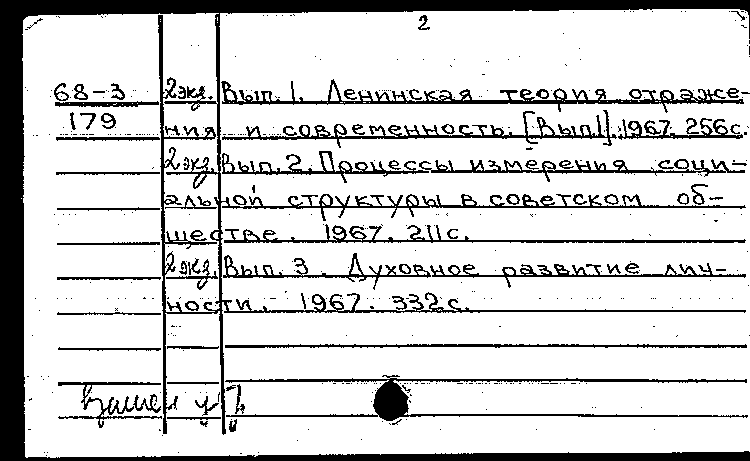 2
68-3 2экз. Вып. 1. Ленинская теория отраже-
179 ния и современность. [Вып.1]. 1967. 256с.
2экз. Вып. 2. Процессы измерения соци-
альной структуры в советском об-
ществе. 1967. 211с.
2экз. Вып. 3. Духовное развитие лич-
ности. 1967. 332с.